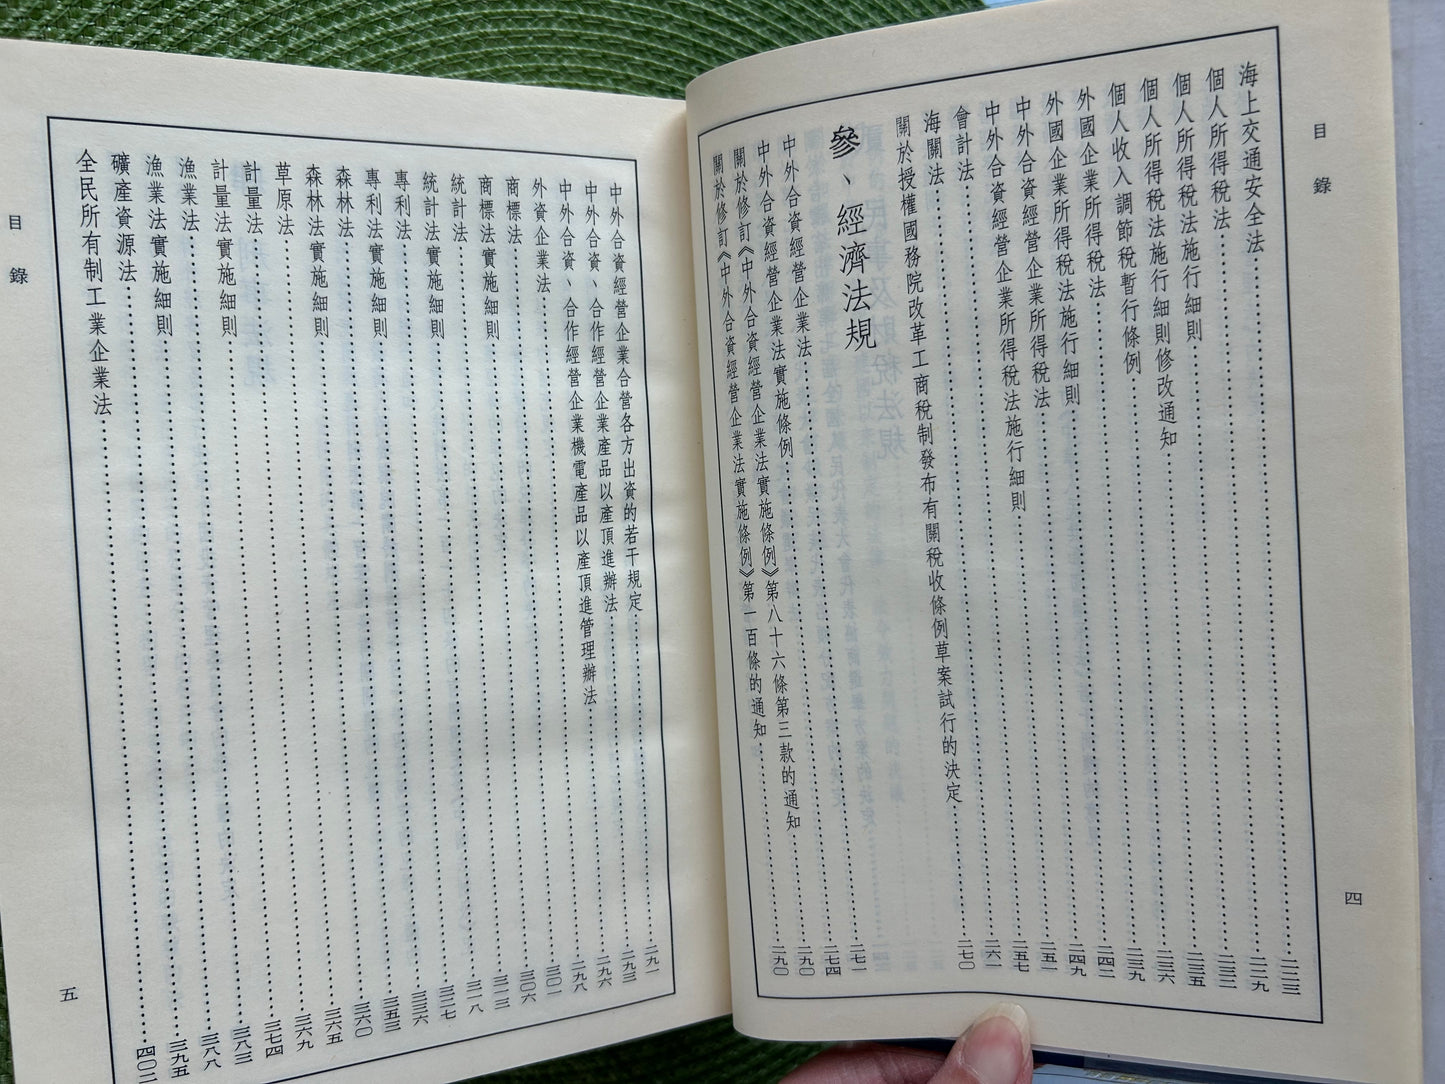 目錄
海上交通安全法……二二三
個人所得稅法……二二九
個人所得稅法施行細則……二三二
個人所得稅法施行細則修改通知……二三五
個人收入調節稅暫行條例……二三六
外國企業所得稅法……二三九
外國企業所得稅法施行細則……二四二
中外合資經營企業所得稅法……二四九
中外合資經營企業所得稅法施行細則……二五一
會計法……二五七
海關法……二六一
關於授權國務院改革工商稅制發布有關稅收條例草案試行的決定……二七〇
參、經濟法規
中外合資經營企業法……二七一
中外合資經營企業法實施條例……二七四
關於修訂《中外合資經營企業法實施條例》第八十六條第三款的通知……二九〇
關於修訂《中外合資經營企業法實施條例》第一百條的通知……二九〇
四
中外合資經營企業合營各方出資的若干規定……二九一
中外合資、合作經營企業產品以產頂進辦法……二九三
中外合資、合作經營企業機電產品以產頂進管理辦法……二九六
外資企業法……二九八
商標法……三〇一
商標法實施細則……三〇六
統計法……三一三
統計法實施細則……三一八
專利法……三二七
專利法實施細則……三三六
森林法……三五三
森林法實施細則……三六〇
草原法……三六五
計量法……三六九
計量法實施細則……三七四
漁業法……三八三
漁業法實施細則……三八八
礦產資源法……三九五
全民所有制工業企業法……四〇二
目錄
五